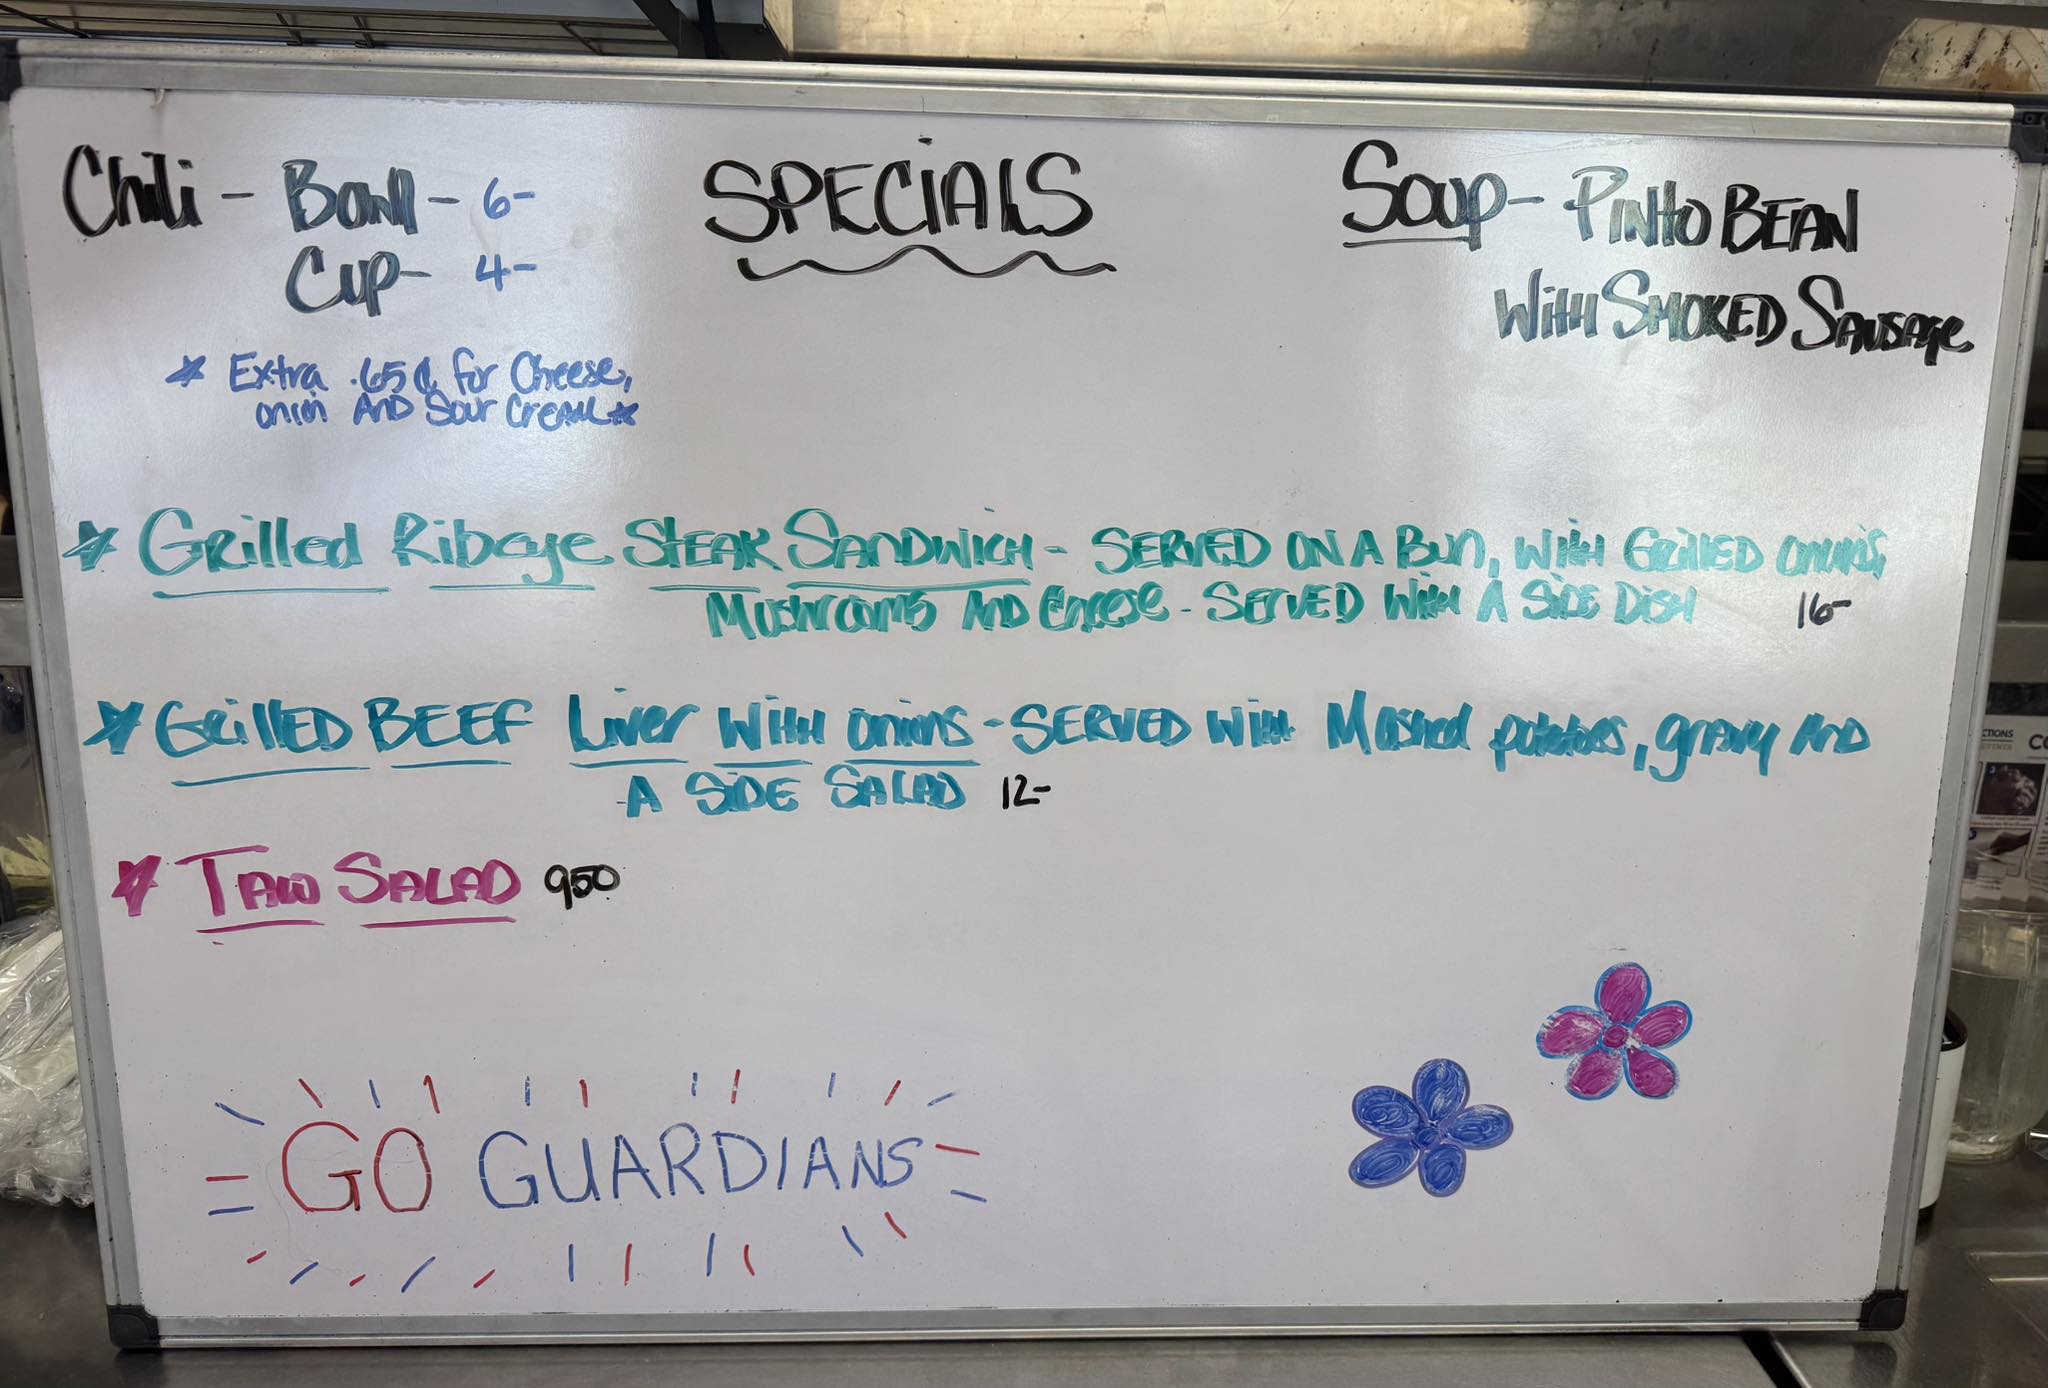 Chili - Bowl - 6-
Cup- 4-
* Extra .65¢ for Cheese,
onion AND Sour Cream *
SPECIALS
Soup- PINTO BEAN
WITH SMOKED SAUSAGE
* Grilled Ribeye STEAK SANDWICH - SERVED ON A BUN, WITH GRILLED ONIONS,
MUSHROOMS AND CHEESE - SERVED WITH A SIDE DISH 16-
* GRILLED BEEF Liver WITH onions - SERVED WITH MASHED potatoes, gravy AND
A SIDE SALAD 12-
* TACO SALAD 950
GO GUARDIANS